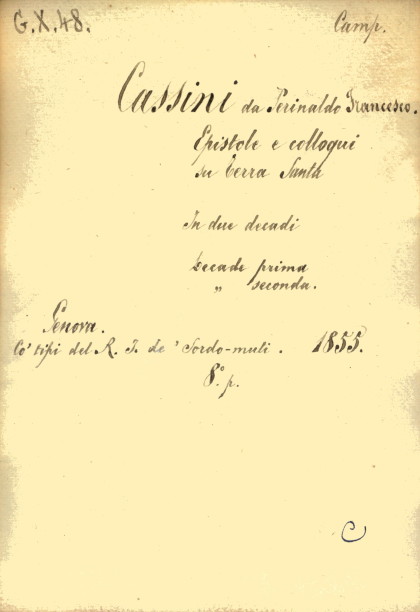 G.X.48.
Camp.
Cassini da Perinaldo Francesco.
Epistole e colloqui
su Terra Santa
In due decadi
Decade prima
„ seconda.
Genova.
Co' tipi del R. I. de' Sordo-muti. 1855.
8.° p.
C